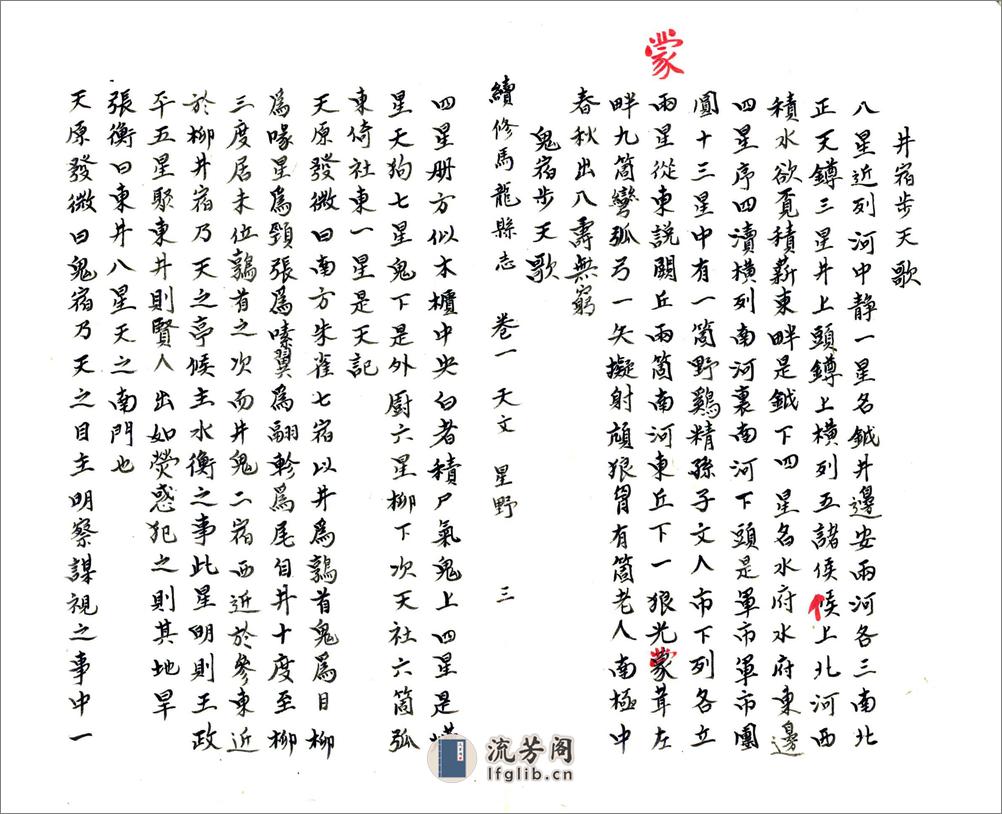 蒙
井宿步天歌
八星近列河中静一星名鉞井邊安兩河各三南北
正天鐏三星井上頭鐏上橫列五諸侯候上北河西
積水欲覔積薪東畔是鉞下四星名水府水府東邊
四星序四瀆橫列南河裏南河下頭是軍市軍市團
圓十三星中有一箇野鷄精孫子丈人市下列各立
兩星從東說闕丘兩箇南河東丘下一狼光蒙茸左
畔九箇彎弧弓一矢擬射頑狼胷有箇老人南極中
春秋出入壽無窮
鬼宿步天歌
續修馬龍縣志 卷一 天文 星野 三
四星册方似木櫃中央白者積尸氣鬼上四星是爟
星天狗七星鬼下是外厨六星柳下次天社六箇弧
東倚社東一星是天記
天原發微曰南方朱雀七宿以井爲鶉首鬼爲目柳
爲喙星爲頸張爲嗉翼爲翮軫爲尾自井十度至柳
三度居未位鶉首之次而井鬼二宿西近於參東近
於柳井宿乃天之亭候主水衡之事此星明則王政
平五星聚東井則賢人出如熒惑犯之則其地旱
張衡曰東井八星天之南門也
天原發微曰鬼宿乃天之目主明察謀視之事中一
蒙
流芳阁
lfglib.cn